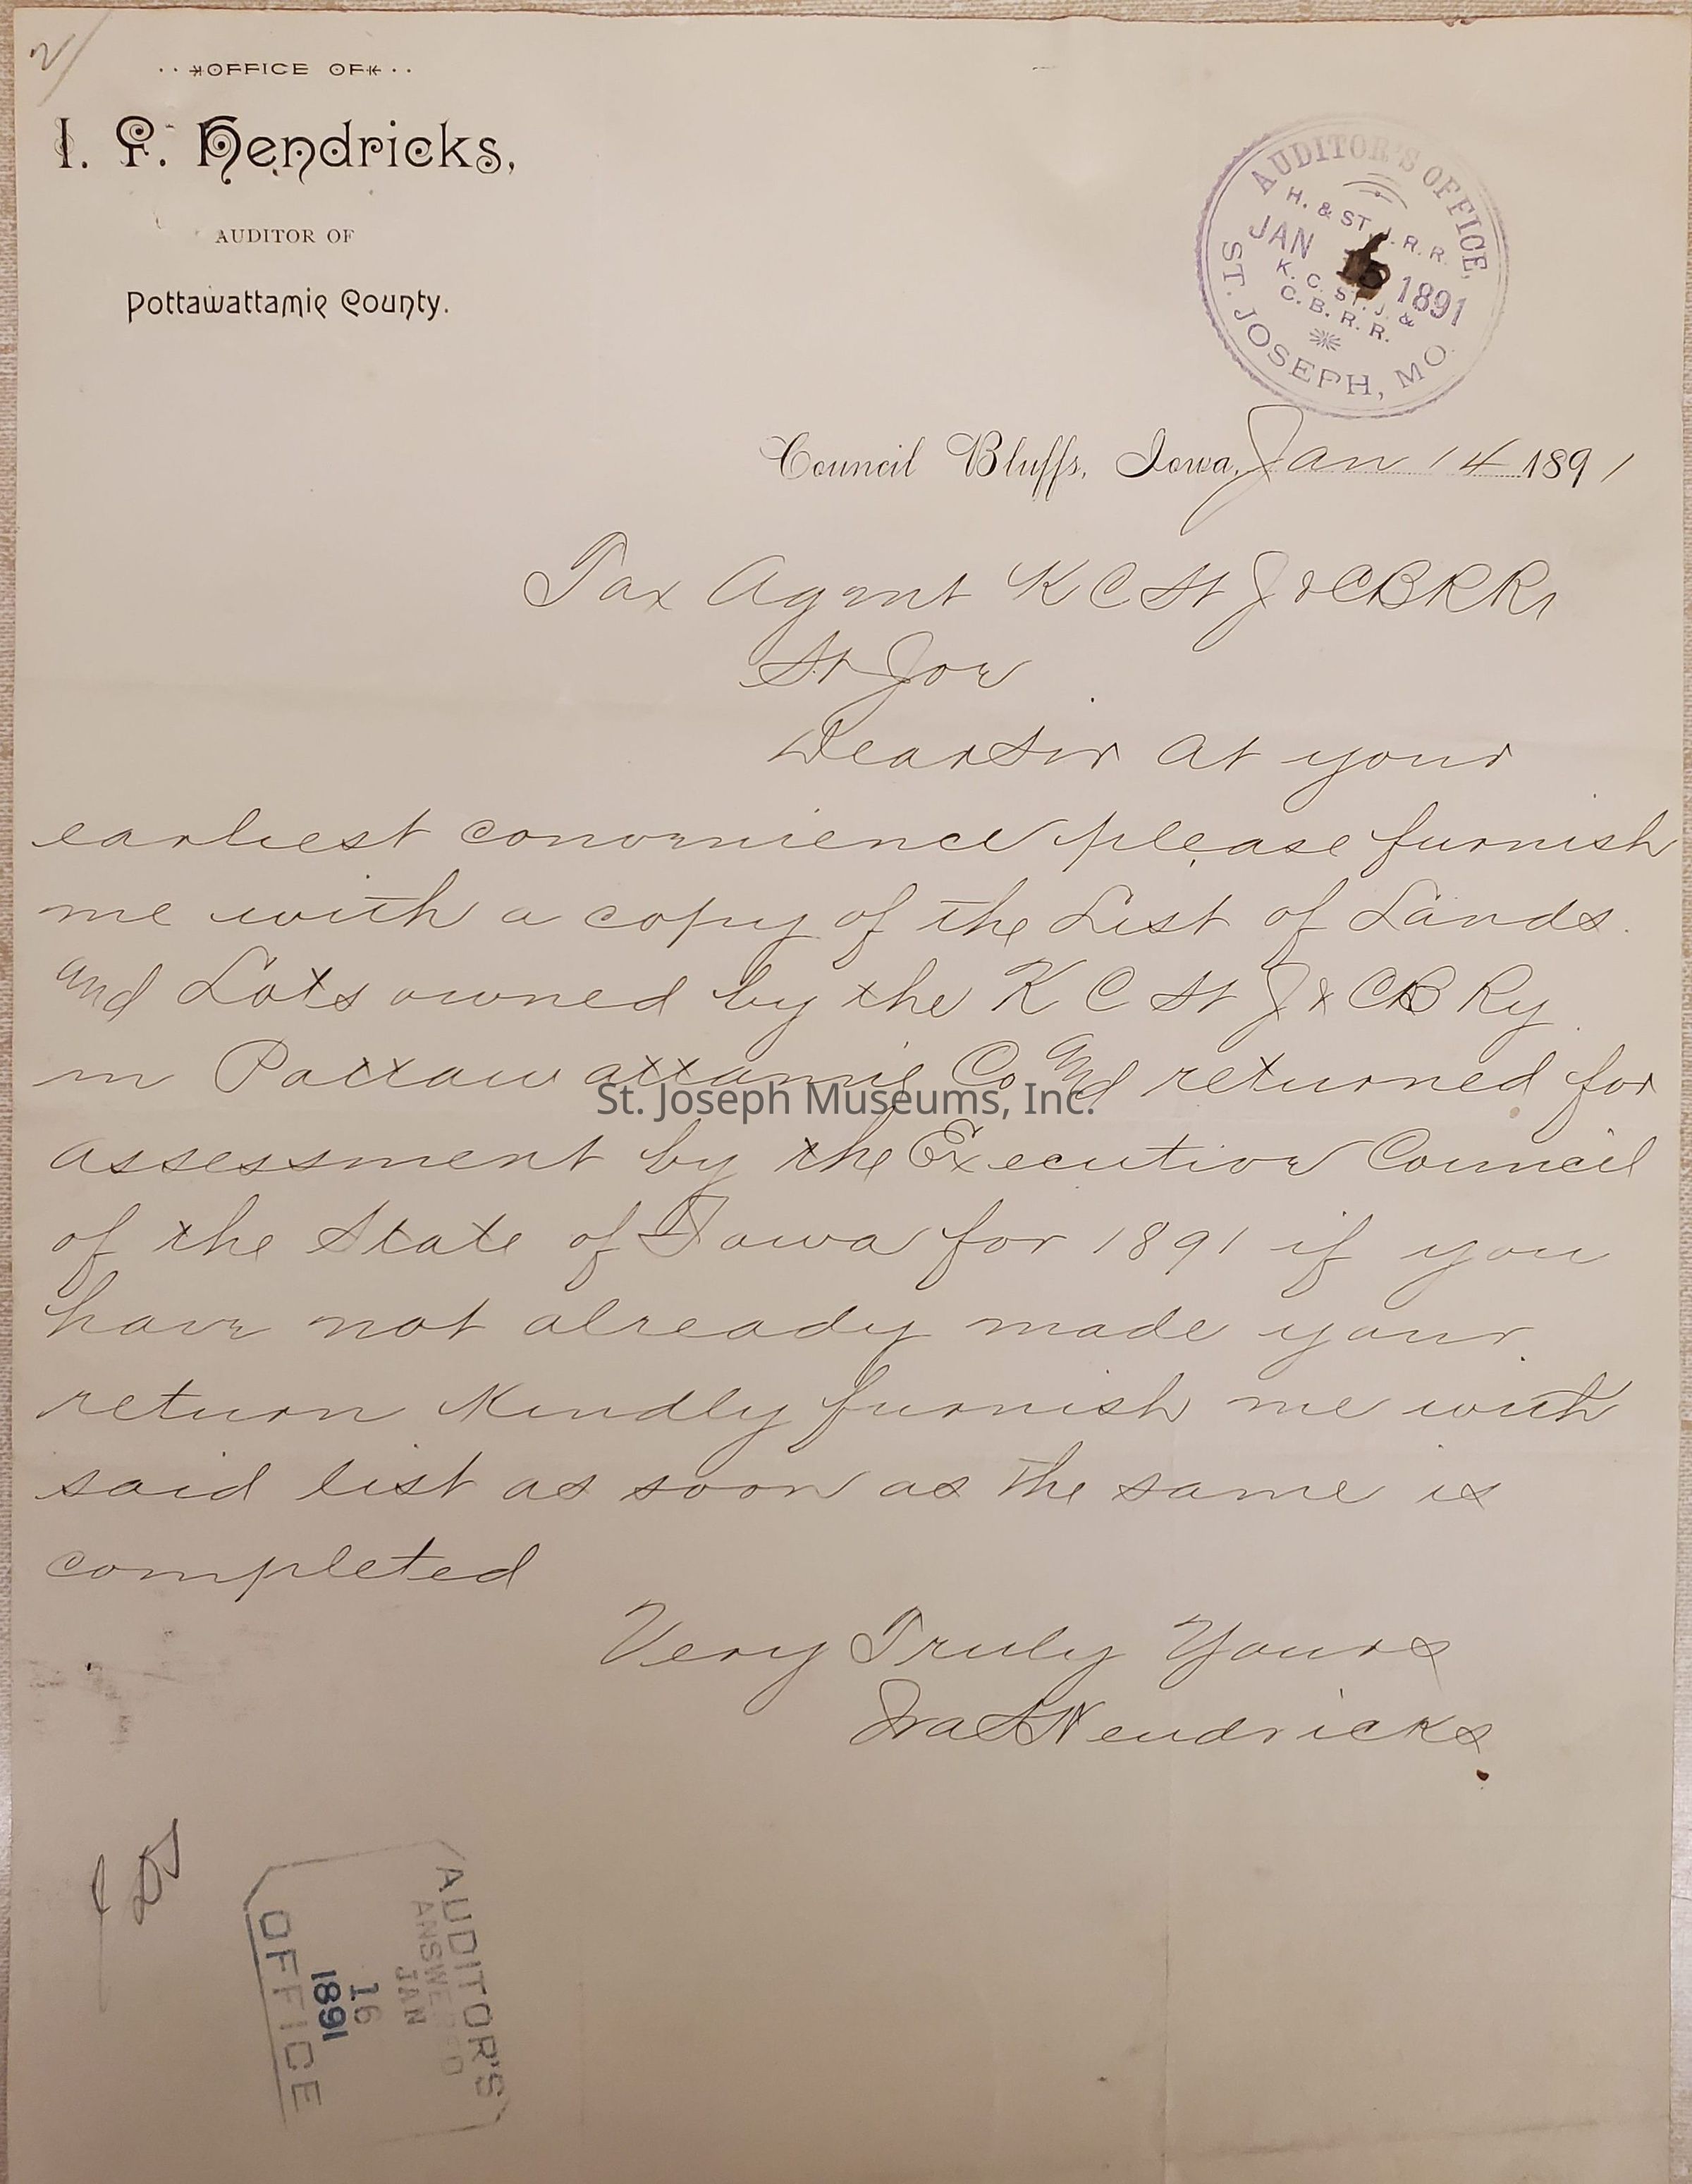 2/
OFFICE OF
I. F. Hendricks,
AUDITOR OF
Pottawattamie County.
AUDITOR'S OFFICE,
H. & ST. J. R. R.
JAN 1891
K. C. ST. J. &
C. B. R. R.
ST. JOSEPH, MO.
Council Bluffs, Iowa, Jan 14 1891
Tax Agent K C St J & C B R R
St Joe
Dear Sir at your
earliest convenience please furnish
me with a copy of the List of Lands
and Lots owned by the K C St J & C B Ry
in Pottawattamie Co and returned for
assessment by the Executive Council
of the State of Iowa for 1891 if you
have not already made your
return Kindly furnish me with
said list as soon as the same is
completed
Very Truly Yours
Ira Hendricks
St. Joseph Museums, Inc.
AUDITOR'S
ANSWERED
JAN
16
1891
OFFICE